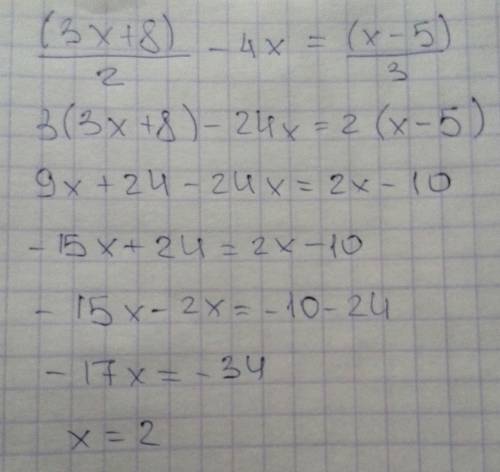 (3x+8)/2 - 4x = (x-5)/3
3(3x+8) - 24x = 2(x-5)
9x + 24 - 24x = 2x - 10
-15x + 24 = 2x - 10
-15x - 2x = -10 - 24
-17x = -34
x = 2